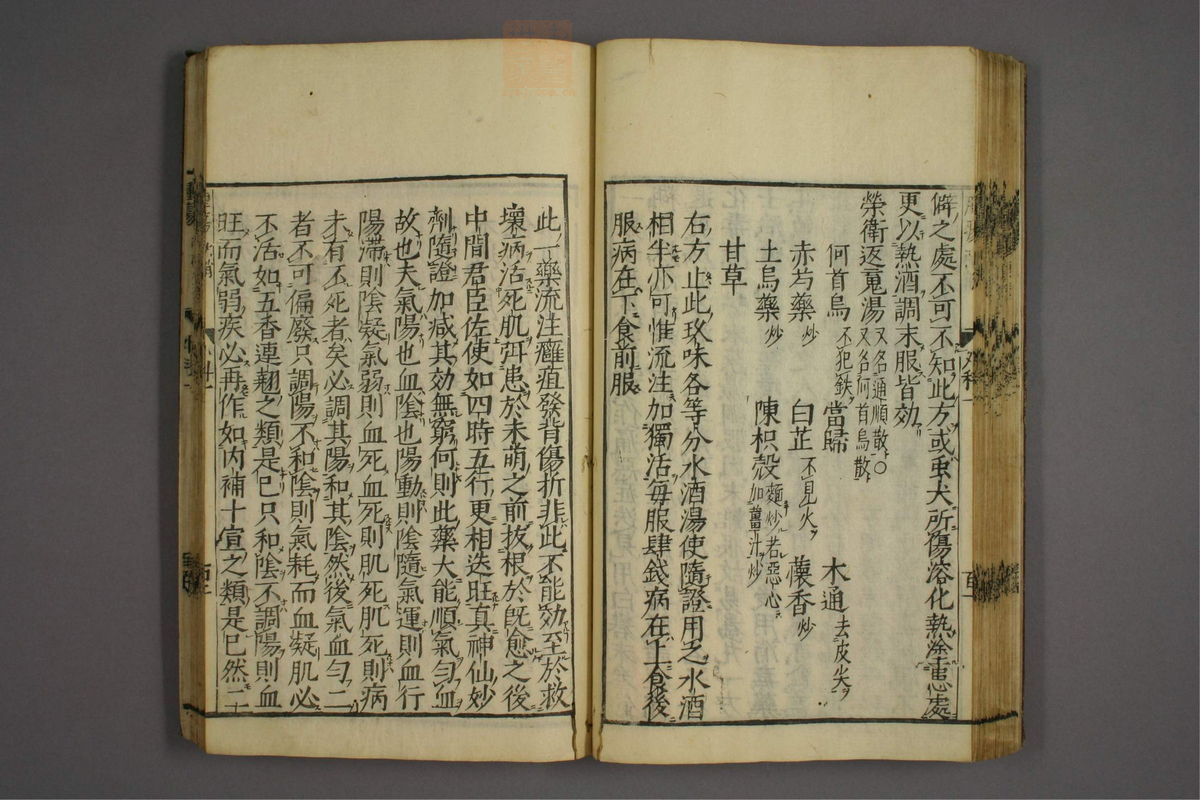 僻之處不可不知此方或虫犬所傷溶化熱塗患處
更以熱酒調末服皆効
榮衛返䰟湯又名通順散○又名何首烏散
何首烏不犯鉄 當歸 木通去皮尖
赤芍藥炒 白芷不見火 懐香炒
土烏藥炒 陳枳殻麵炒若惡心加薑汁炒
甘草
右方止此玖味各等分水酒湯使隨證用之水酒
相半亦可惟流注加獨活毎服肆銭病在上食後
服病在下食前服
此一藥流注癰疽發背傷折非此不能効至於救
壞病活死肌弭患於未萌之前拔根於既愈之後
中間君臣佐使如四時五行更相迭旺真神仙妙
劑隨證加减其効無窮何則此藥大能順氣匀血
故也夫氣陽也血陰也陽動則陰隨氣運則血行
陽滯則陰凝氣弱則血死血死則肌死肌死則病
未有不死者矣必調其陽和其陰然後氣血匀二
者不可偏廢只調陽不和陰則氣耗而血凝肌必
不活如五香連翹之類是巳只和陰不調陽則血
旺而氣弱疾必再作如内補十宣之類是巳然二